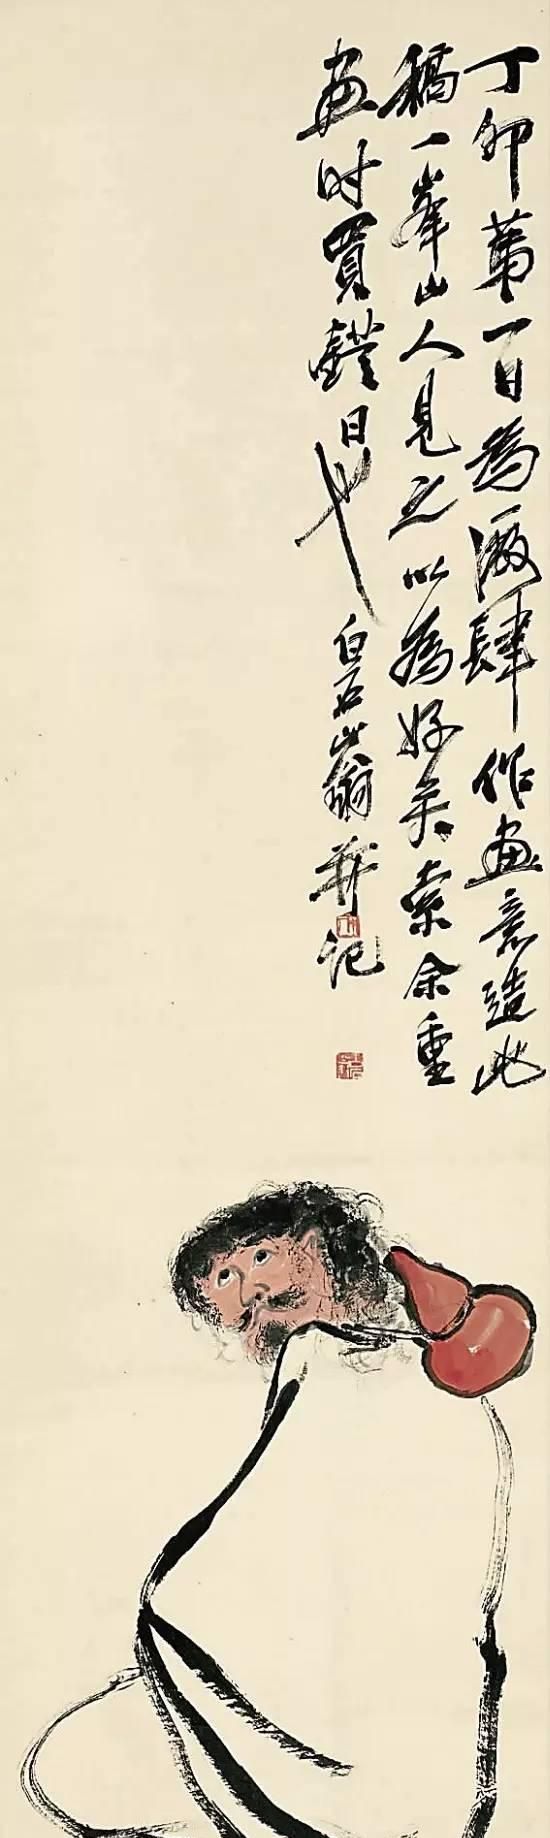 丁卯第一日為厰肆作畫意造此
稿一峯山人見之以為好矣索余重
畫时買鐙日也白石山翁并记